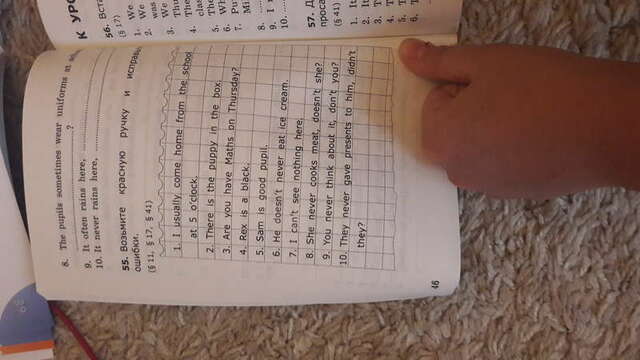 8. The pupils sometimes wear uniforms at
?
9. It often rains here,
10. It never rains here,
55. Возьмите красную ручку и исправьте
ошибки.
(§ 11, § 17, § 41)
1. I usually come home from the school
at 5 o'clock.
2. There is the puppy in the box.
3. Are you have Maths on Thursday?
4. Rex is a black.
5. Sam is good pupil.
6. He doesn't never eat ice cream.
7. I can't see nothing here.
8. She never cooks meat, doesn't she?
9. You never think about it, don't you?
10. They never gave presents to him, didn't
they?
46
К
56.
(§ 17)
1. We
2. We
was
3. We
4.
5.
6.
7.
8.
9. I
10.
57.
(§ 41)
1. It
2. It
3.
4.
5.
6.